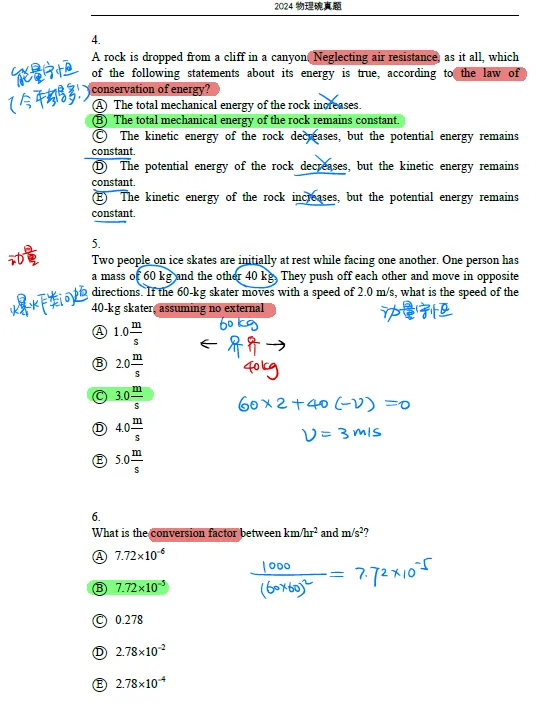 2024 物理碗真题
4.
A rock is dropped from a cliff in a canyon. Neglecting air resistance, as it all, which
能量守恒
of the following statements about its energy is true, according to the law of
(今年都多!)
conservation of energy?
Ⓐ The total mechanical energy of the rock increases.
Ⓑ The total mechanical energy of the rock remains constant.
Ⓒ The kinetic energy of the rock decreases, but the potential energy remains
constant.
Ⓓ The potential energy of the rock decreases, but the kinetic energy remains
constant.
Ⓔ The kinetic energy of the rock increases, but the potential energy remains
constant.
5.
动量
Two people on ice skates are initially at rest while facing one another. One person has
a mass of 60 kg and the other 40 kg. They push off each other and move in opposite
爆炸类问题
directions. If the 60-kg skater moves with a speed of 2.0 m/s, what is the speed of the
40-kg skater, assuming no external
动量守恒
Ⓐ 1.0 m/s
60kg
Ⓑ 2.0 m/s
40kg
Ⓒ 3.0 m/s
60×2+40(-v)=0
Ⓓ 4.0 m/s
v=3m/s
Ⓔ 5.0 m/s
6.
What is the conversion factor between km/hr² and m/s²?
Ⓐ 7.72×10⁻⁶
Ⓑ 7.72×10⁻⁵
1000/(60×60)² = 7.72×10⁻⁵
Ⓒ 0.278
Ⓓ 2.78×10⁻²
Ⓔ 2.78×10⁻⁴